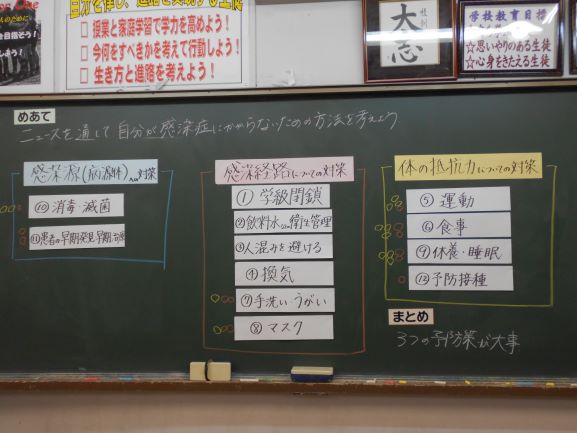 自分を律し、進路を実現する生徒
□ 授業と家庭学習で学力を高めよう！
□ 今何をすべきかを考えて行動しよう！
□ 生き方と進路を考えよう！
大志
学校教育目標
☆思いやりのある生徒
☆心身をきたえる生徒
めあて
ニュースを通して自分が感染症にかからないための方法を考えよう
感染源(病原体)への対策
⑩消毒・滅菌
⑪患者の早期発見・早期治療
感染経路についての対策
①学級閉鎖
②飲料水などの衛生管理
③人混みを避ける
④換気
⑦手洗い・うがい
⑧マスク
体の抵抗力についての対策
⑤運動
⑥食事
⑨休養・睡眠
⑫予防接種
まとめ
3つの予防策が大事